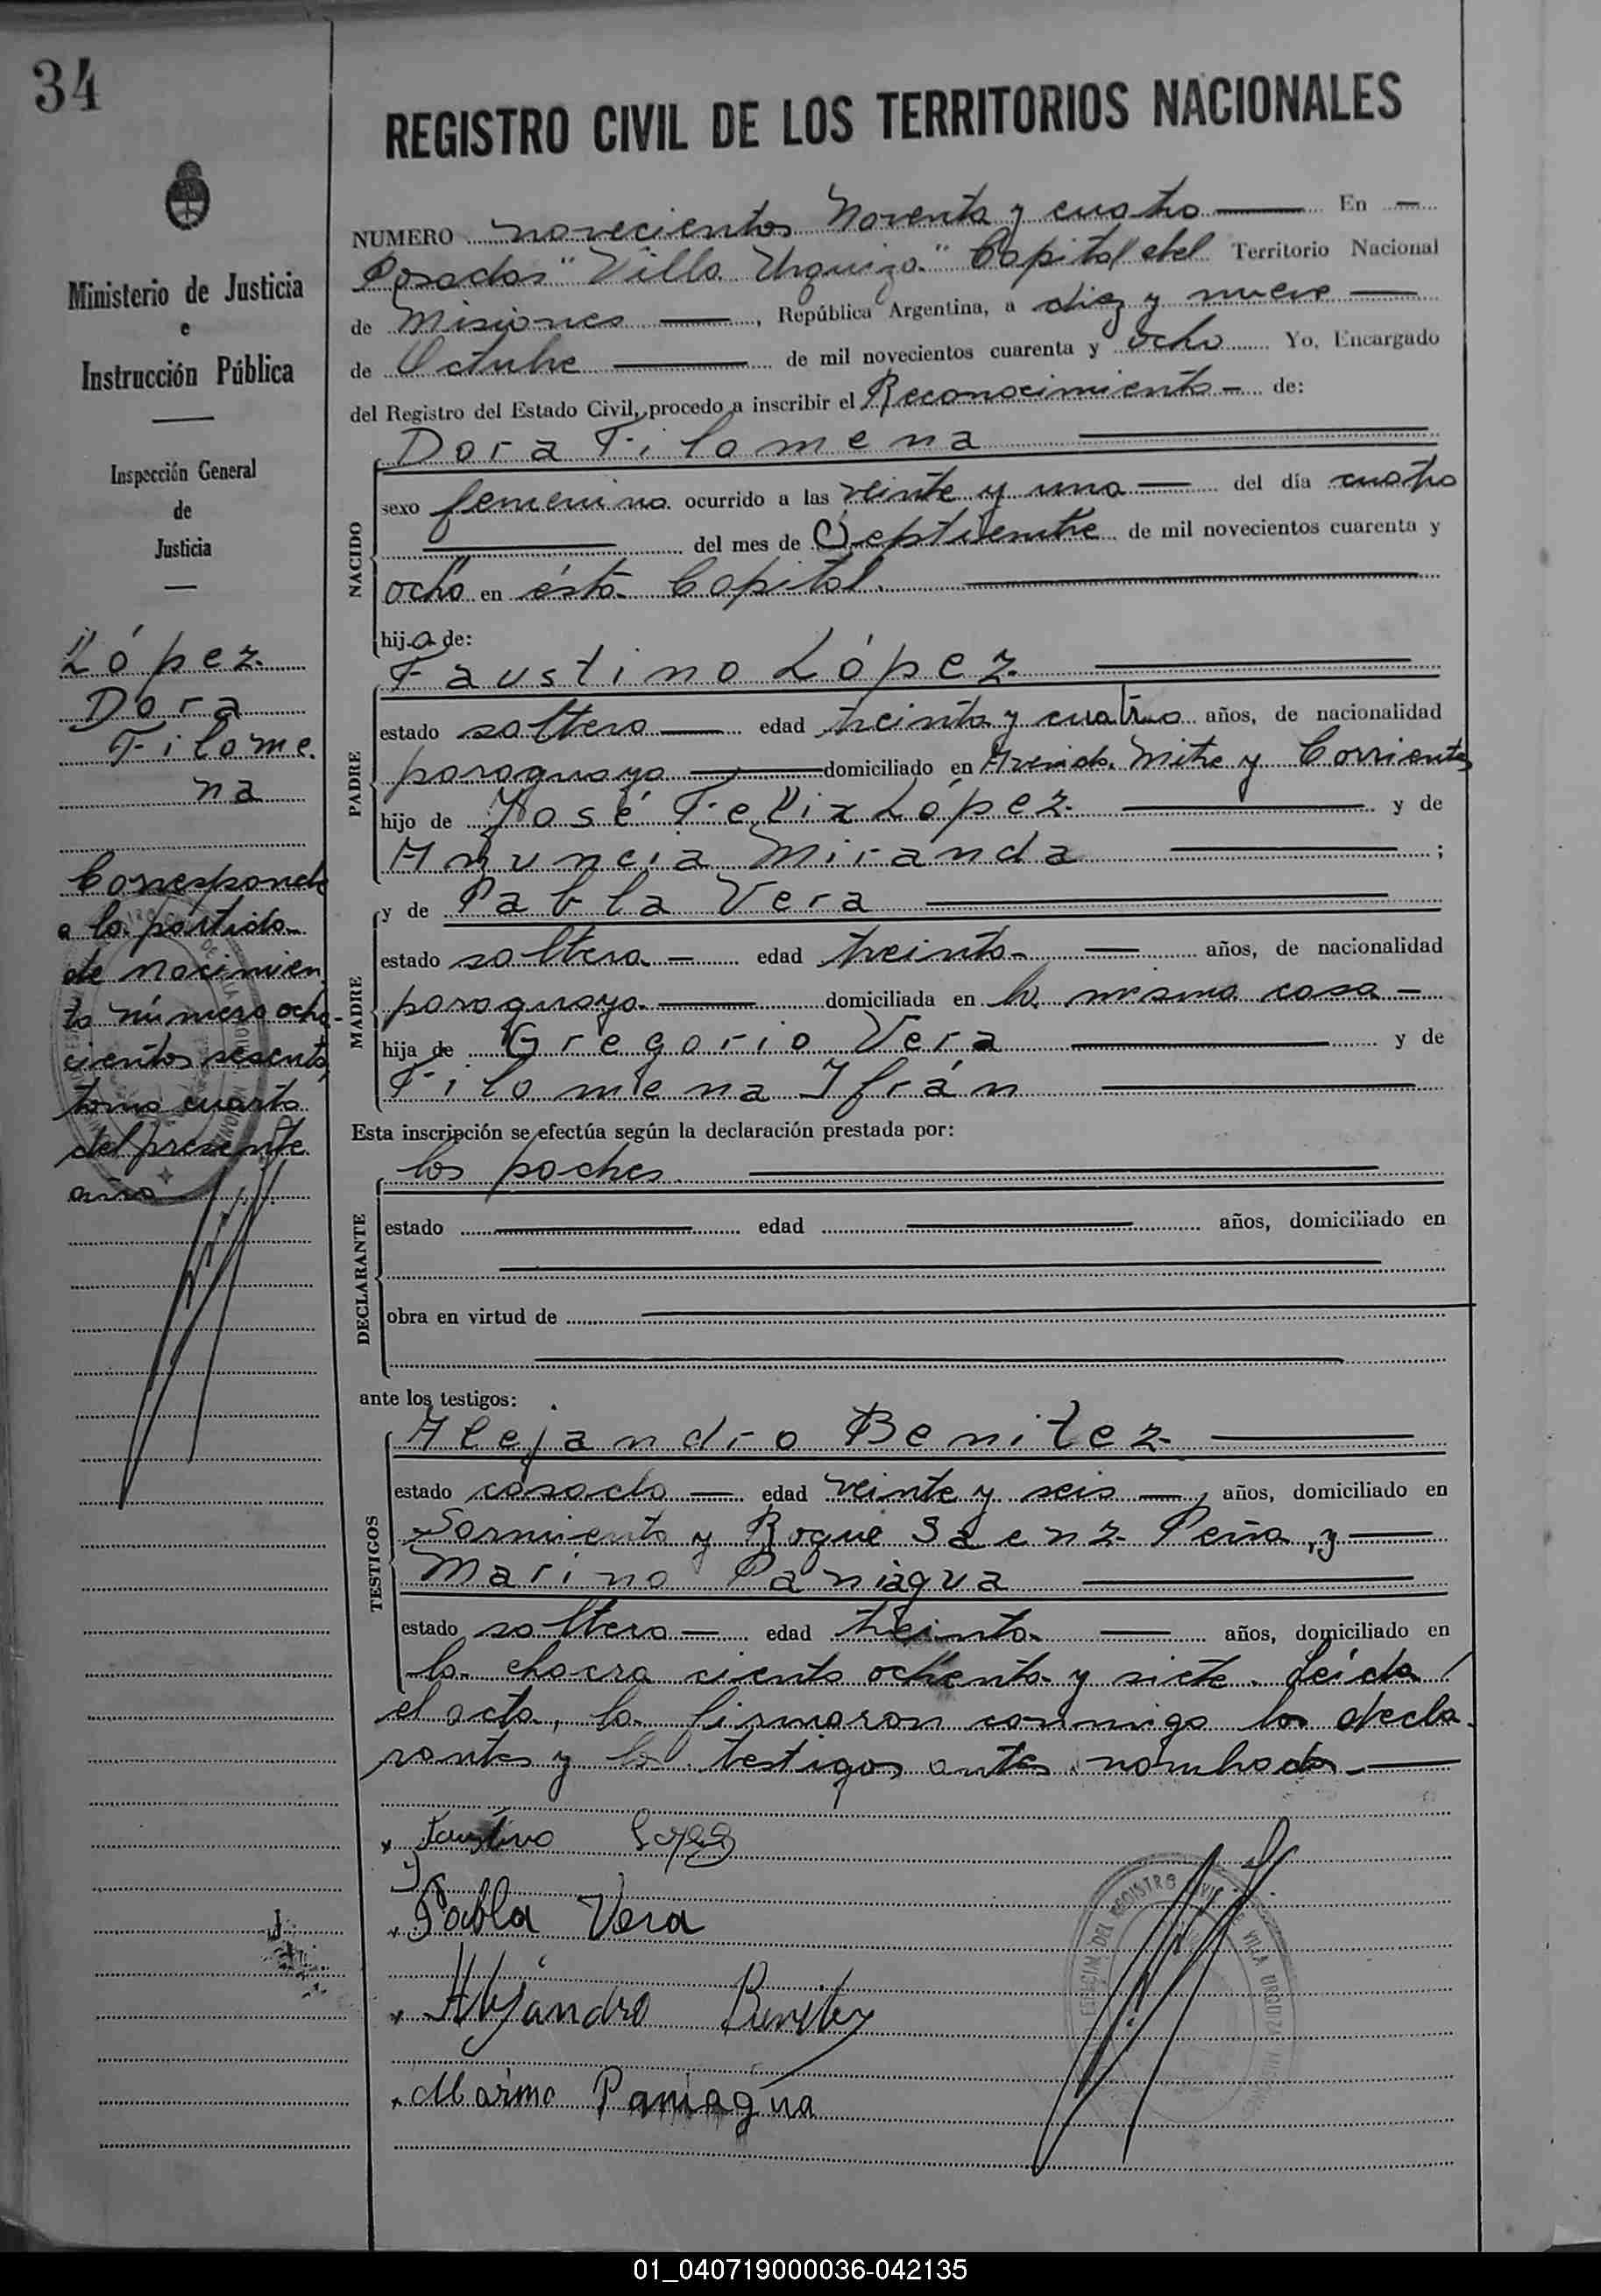 34
REGISTRO CIVIL DE LOS TERRITORIOS NACIONALES
Ministerio de Justicia
e
Instrucción Pública
Inspección General
de
Justicia
López
Dora
Filome.
na
Corresponde
a la partida
de nacimien
to número ocho-
cientos sesenta,
tomo cuarto
del presente
año
NUMERO novecientos noventa y cuatro — En —
Posadas "Villa Urquiza" Capital del Territorio Nacional
de Misiones —, República Argentina, a diez y nueve —
de Octubre — de mil novecientos cuarenta y ocho Yo, Encargado
del Registro del Estado Civil, procedo a inscribir el Reconocimiento — de:
Dora Filomena
NACIDO
sexo femenino ocurrido a las veinte y una — del día cuatro
— del mes de Septiembre de mil novecientos cuarenta y
ocho en ésta Capital.
hija de:
Faustino López
PADRE
estado soltero — edad treinta y cuatro años, de nacionalidad
paraguaya — domiciliado en Avenida Mitre y Corrientes
hijo de José Felix López — y de
Anuncia Miranda — ;
MADRE
y de Pabla Vera
estado soltera — edad treinta — años, de nacionalidad
paraguaya — domiciliada en la misma casa —
hija de Gregorio Vera — y de
Filomena Ifrán
Esta inscripción se efectúa según la declaración prestada por:
los padres
DECLARANTE
estado — edad — años, domiciliado en
obra en virtud de
ante los testigos:
Alejandro Benitez
TESTIGOS
estado casado — edad veinte y seis —, años, domiciliado en
Sarmiento y Roque Saenz Peña, y —
Marino Paniagua
estado soltero — edad treinta — años, domiciliado en
la chacra ciento ochenta y siete. Leída
el acta, la firmaron conmigo los decla
rantes y los testigos antes nombrados. —
Faustino Lopez
Pabla Vera
Alejandro Benitez
Marino Paniagua
DEL REGISTRO CIVIL VILLA URQUIZA
01_040719000036-042135